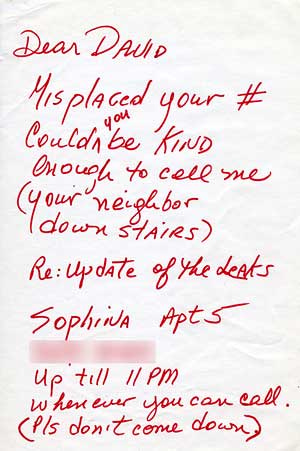 Dear DAVID
Misplaced your #
Could you be KIND
enough to call me
(your neighbor
down STAIRS)
Re: Update of the Leaks
Sophina Apt 5
Up till 11 PM
whenever you can call.
(Pls don't come down)